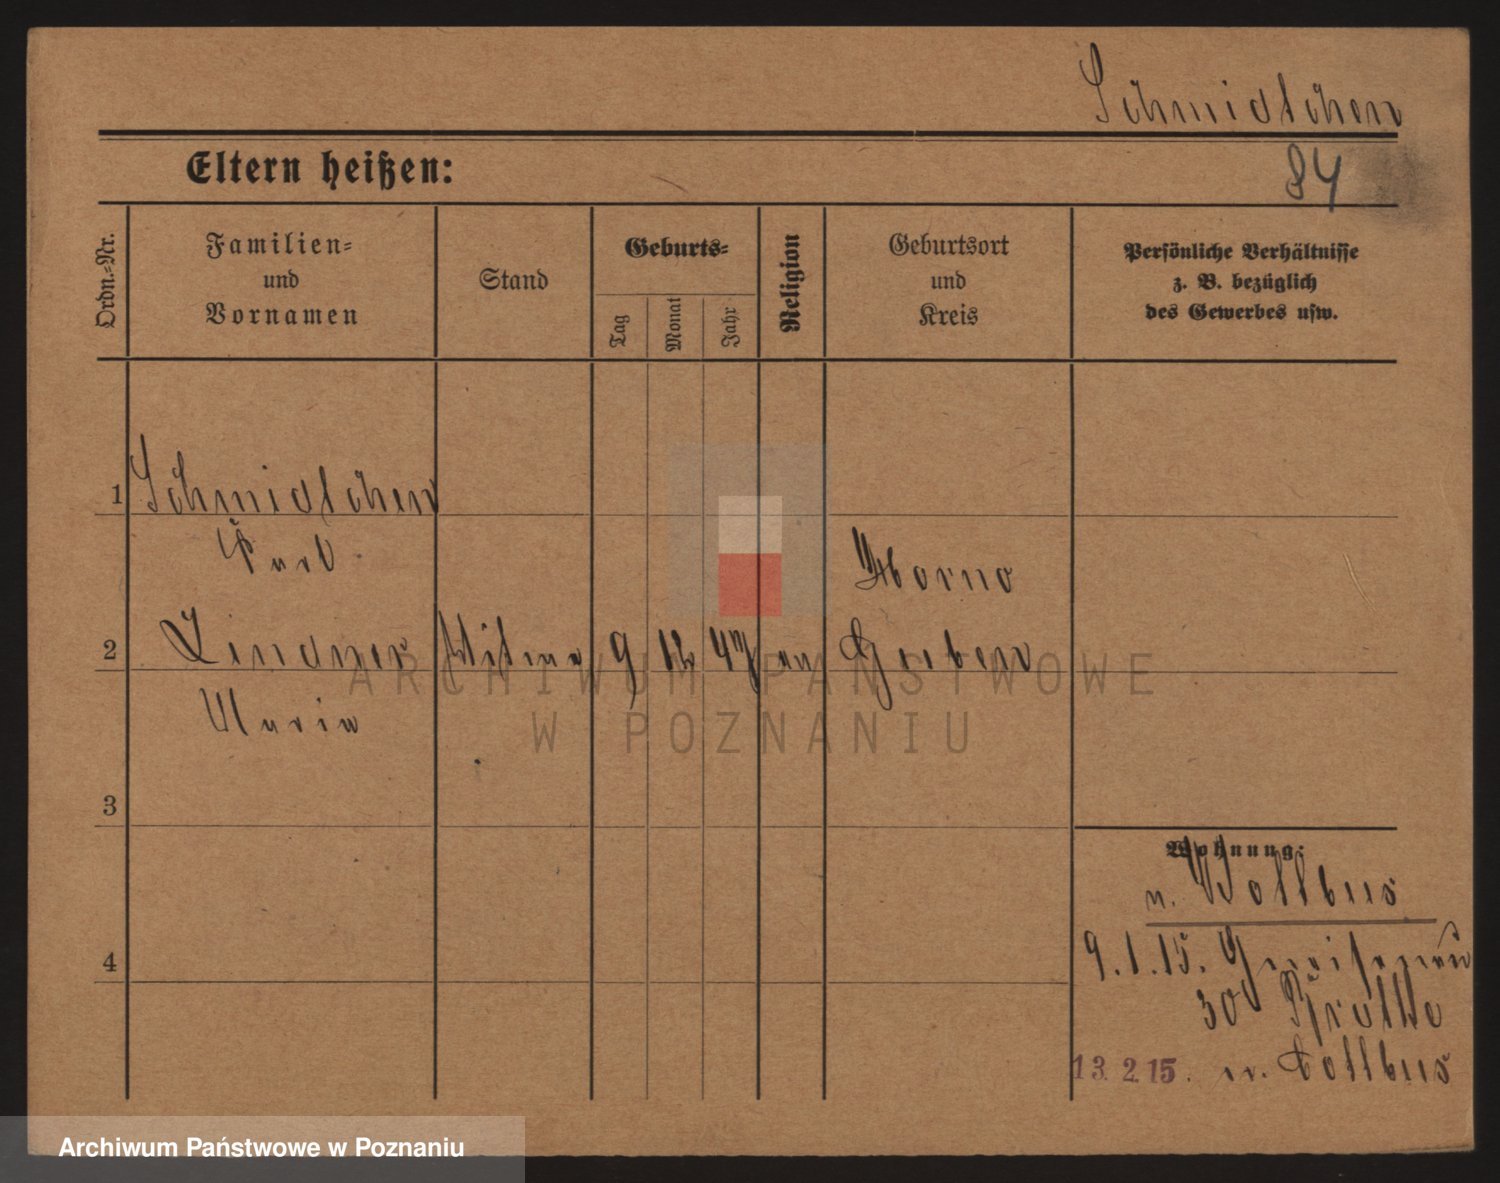 Schmidtchen
Eltern heißen:
84
Ordn.-Nr.
Familien-
und
Vornamen
Stand
Geburts-
Tag
Monat
Jahr
Religion
Geburtsort
und
Kreis
Persönliche Verhältnisse
z. B. bezüglich
des Gewerbes usw.
1 Schmidtchen
Karl
Horno
2 Lindner Witwe 9 12 47 ev Guben
Maria
3
Wohnung:
n. Kottbus
4
9.1.15. Gneisenau
30
13.2.15. n. Cottbus
ARCHIWUM PAŃSTWOWE
W POZNANIU
Archiwum Państwowe w Poznaniu